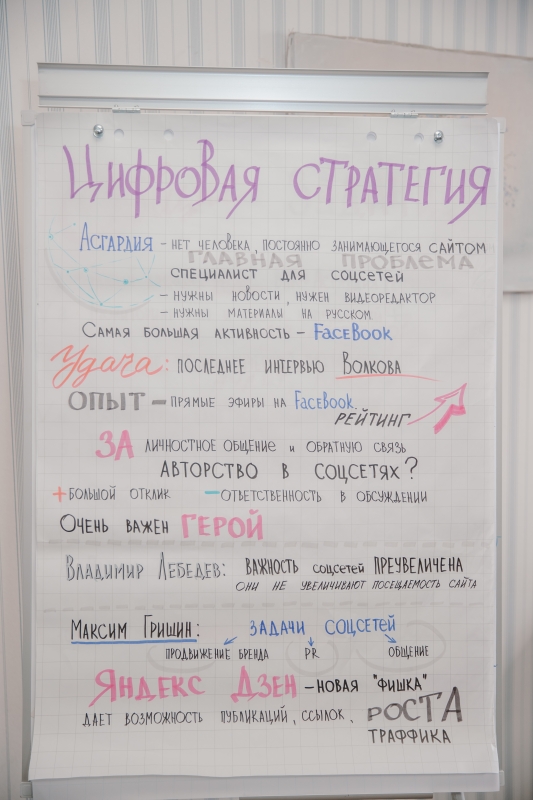 Цифровая стратегия
Асгардия – нет человека, постоянно занимающегося сайтом
главная проблема
специалист для соцсетей
– нужны новости, нужен видеоредактор
– нужны материалы на русском
Самая большая активность – FaceBook
Удача: последнее интервью Волкова
Опыт – прямые эфиры на FaceBook.
рейтинг
За личностное общение и обратную связь
Авторство в соцсетях?
+ большой отклик – ответственность в обсуждении
Очень важен герой
Владимир Лебедев: важность соцсетей преувеличена
они не увеличивают посещаемость сайта
Максим Гришин: задачи соцсетей
продвижение бренда PR общение
Яндекс Дзен – новая "фишка"
дает возможность публикаций, ссылок, роста
траффика